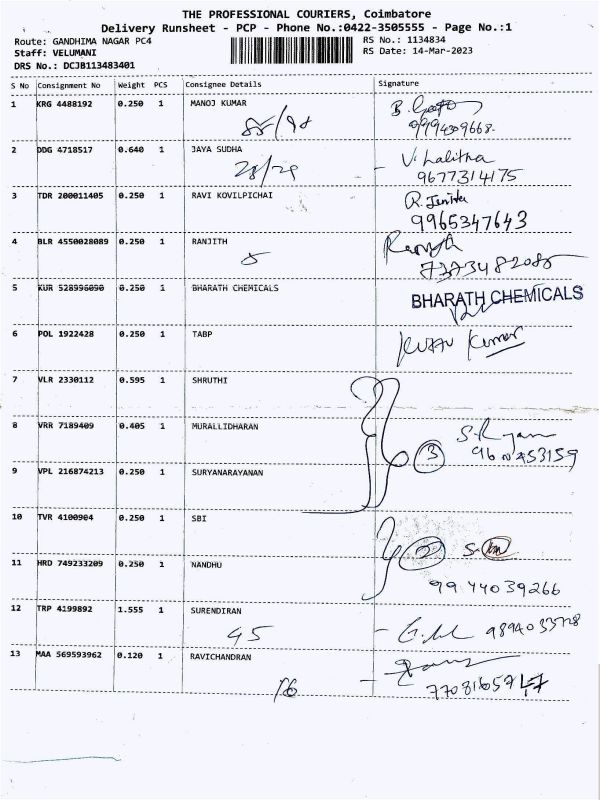 THE PROFESSIONAL COURIERS, Coimbatore
Delivery Runsheet - PCP - Phone No.:0422-3505555 - Page No.:1
Route: GANDHIMA NAGAR PC4 RS No.: 1134834
Staff: VELUMANI RS Date: 14-Mar-2023
DRS No.: DCJB113483401
S No Consignment No Weight PCS Consignee Details Signature
1 KRG 4488192 0.250 1 MANOJ KUMAR
9994309668
2 DDG 4718517 0.640 1 JAYA SUDHA V. Lalitha
28/29 9677314175
3 TDR 200011405 0.250 1 RAVI KOVILPICHAI R. Jenita
9965347643
4 BLR 4550028089 0.250 1 RANJITH
5 7373482085
5 KUR 528996090 0.250 1 BHARATH CHEMICALS BHARATH CHEMICALS
6 POL 1922428 0.250 1 TABP Kumar
7 VLR 2330112 0.595 1 SHRUTHI
8 VRR 7189409 0.405 1 MURALLIDHARAN
3
9 VPL 216874213 0.250 1 SURYANARAYANAN
10 TVR 4100904 0.250 1 SBI
2
11 HRD 749233209 0.250 1 NANDHU
9944039266
12 TRP 4199892 1.555 1 SURENDIRAN
45
13 MAA 569593962 0.120 1 RAVICHANDRAN
16